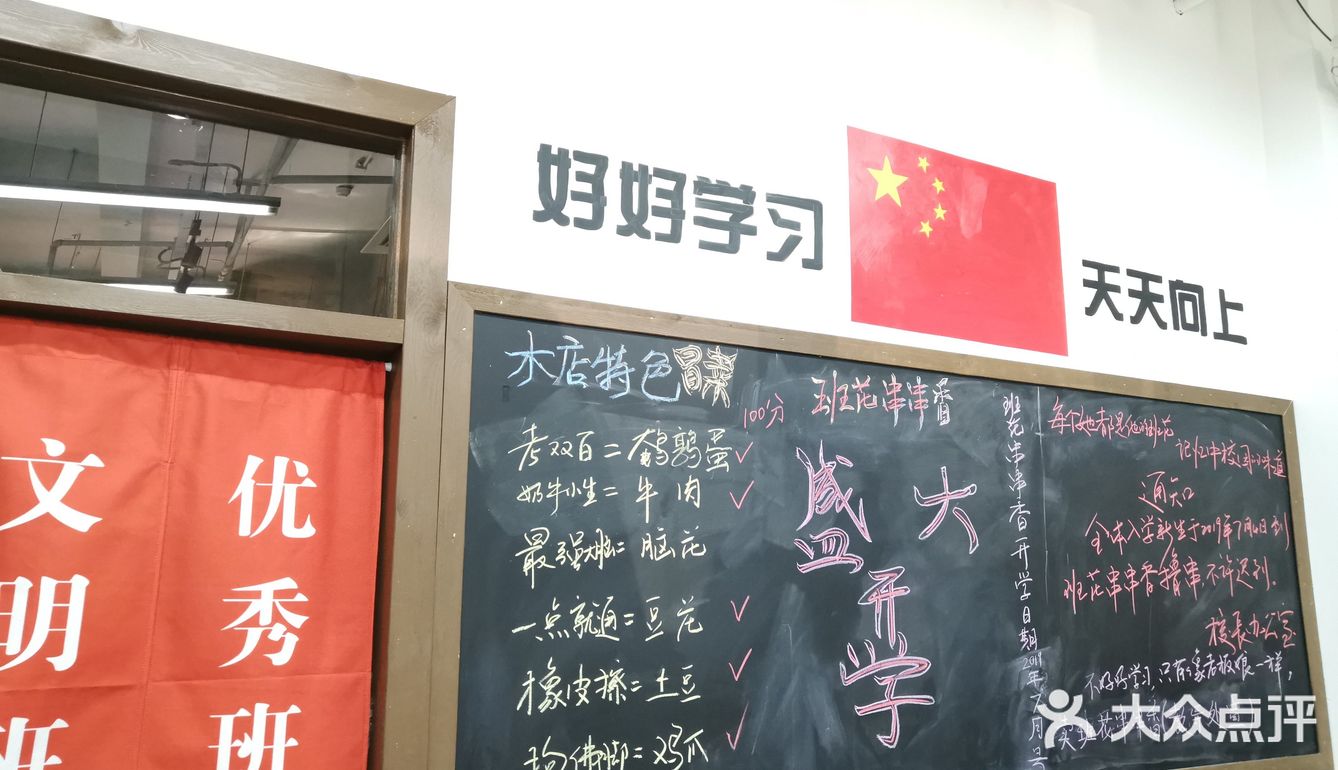 好好学习
天天向上
文明班
优秀班
本店特色冒菜
考双百=鹌鹑蛋
奶牛小生=牛肉
最强大脑=脑花
一点就通=豆花
橡皮擦=土豆
抱佛脚=鸡爪
100分
班花串串香
盛大
开学
班花串串香开学日期2019年7月
每个她都是他的班花
记忆中校园的味道
通知
全体入学新生于2019年7月
班花串串香撸串不许迟到.
校长办公室
不好好学习,只有像老板娘一样,
班花串串香
大众点评